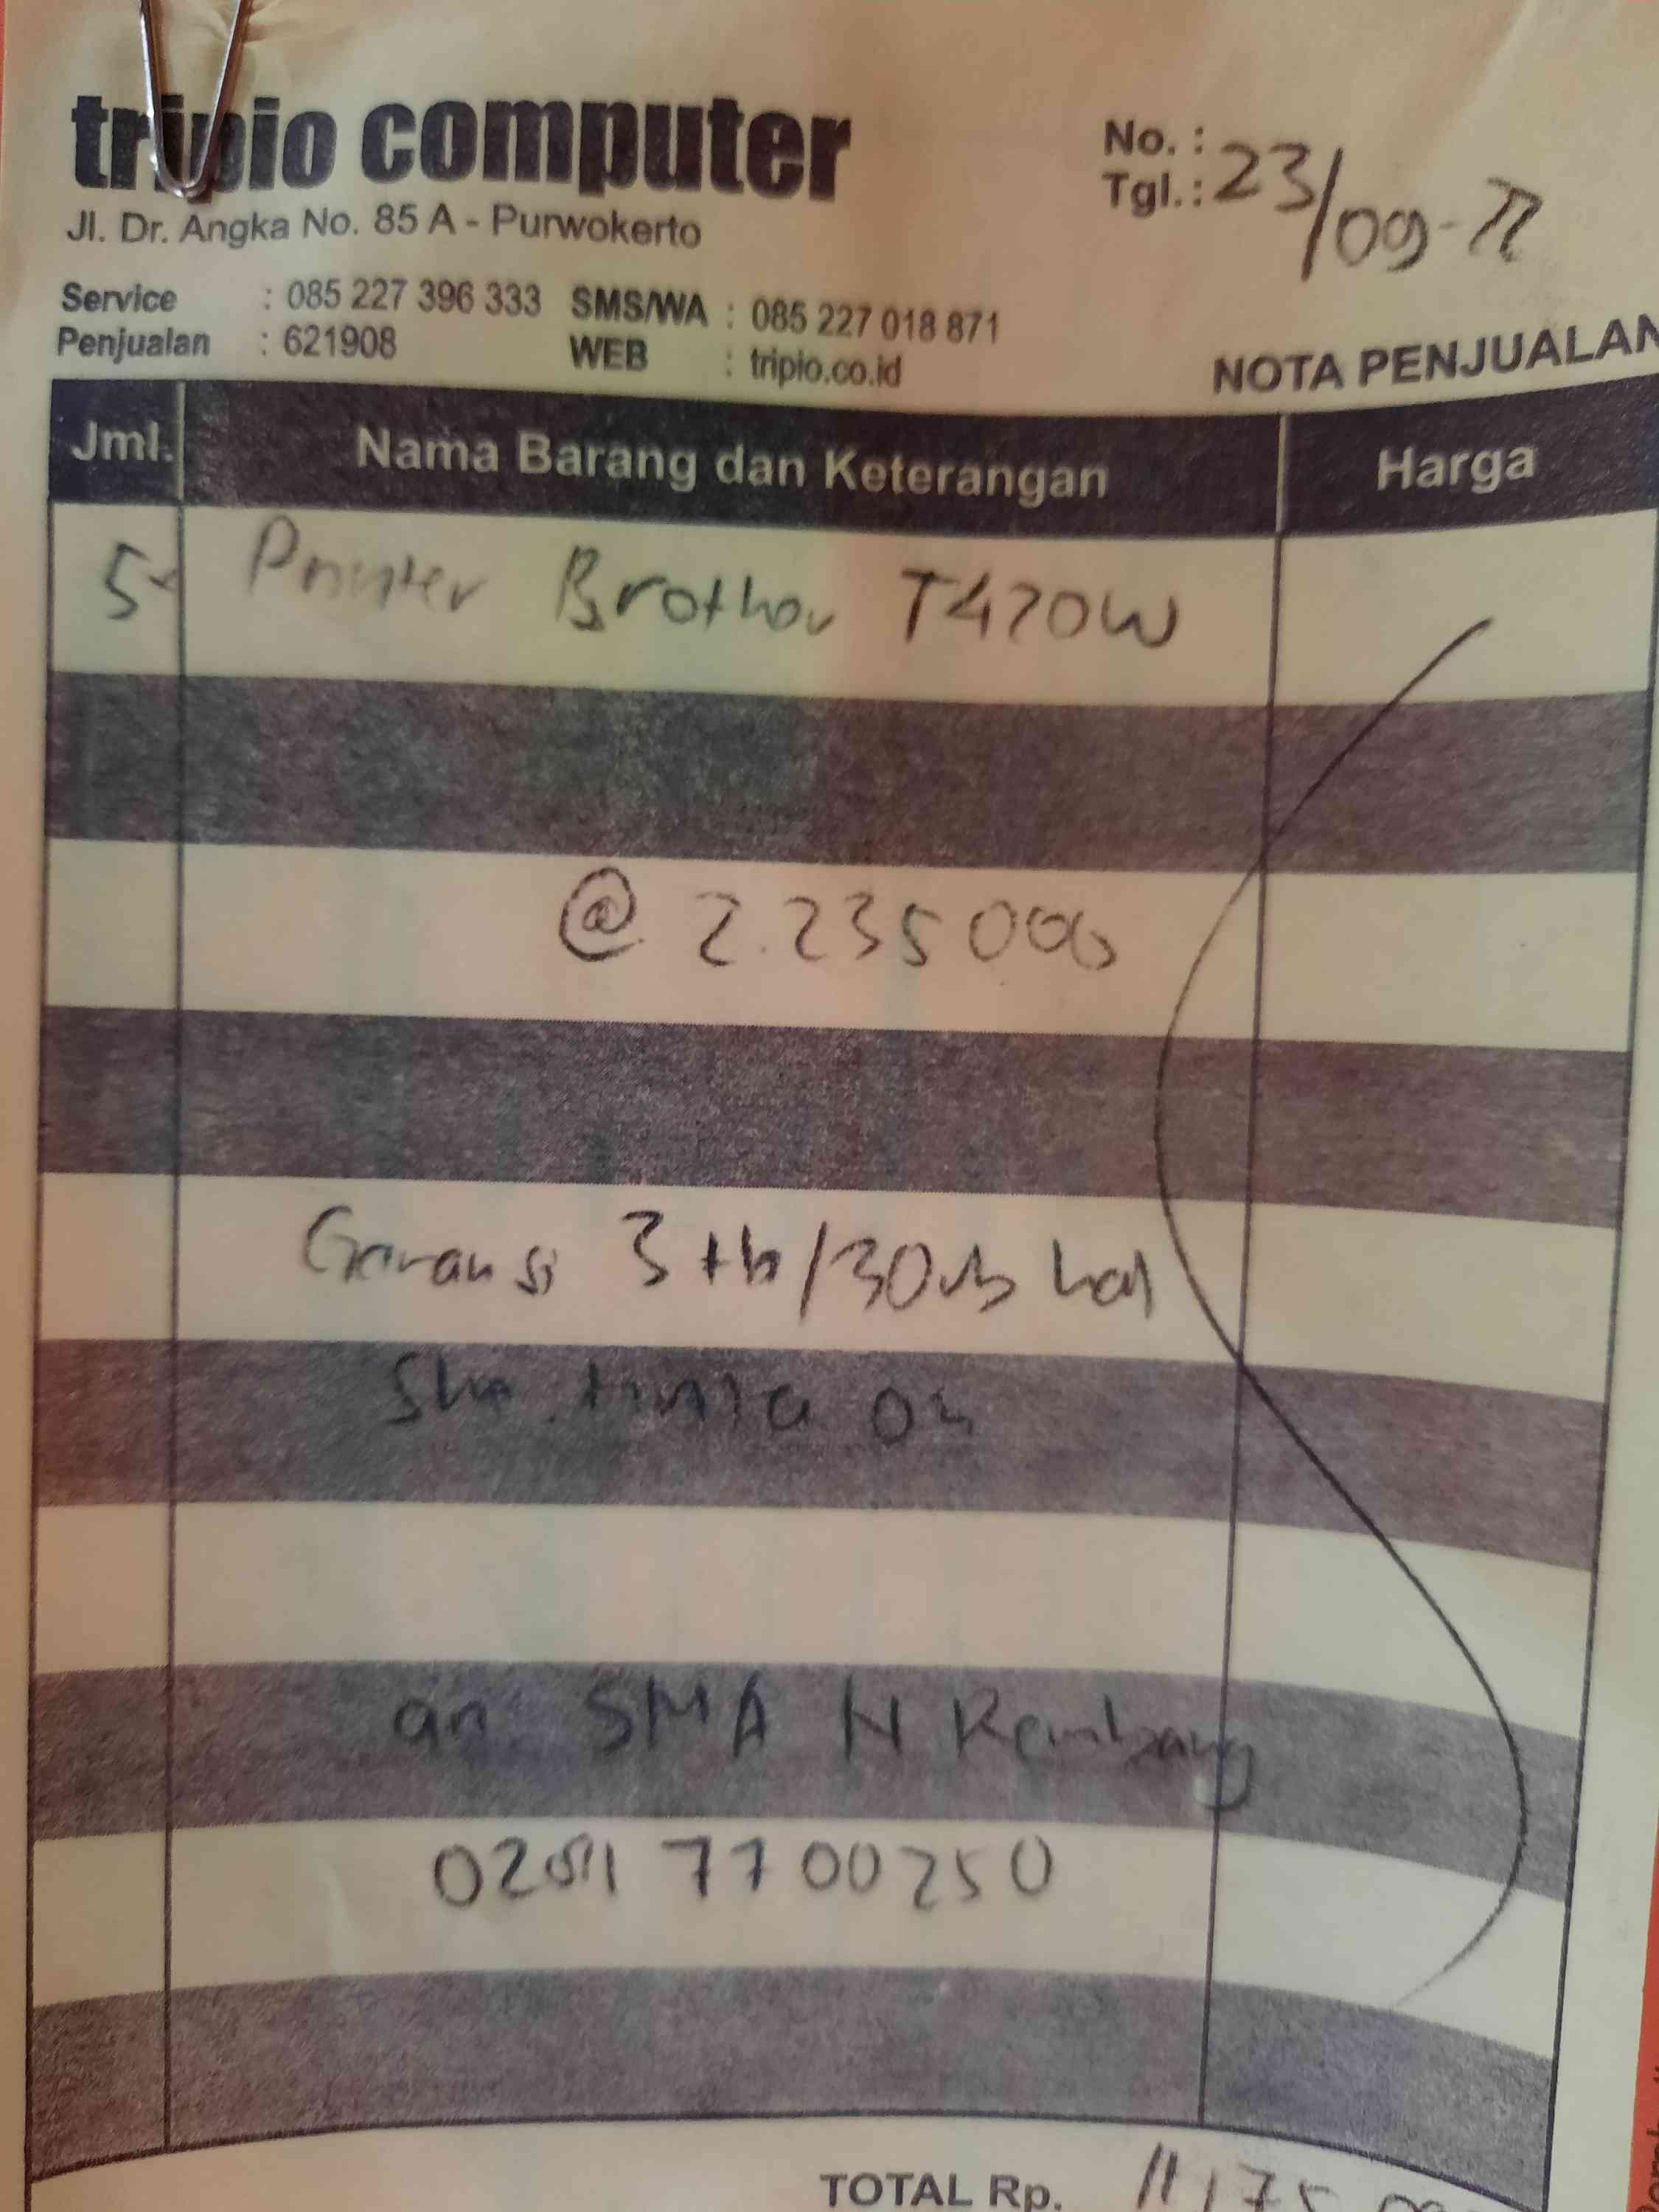 tripio computer
Jl. Dr. Angka No. 85 A - Purwokerto
No. :
Tgl. : 23/09-22
Service : 085 227 396 333 SMS/WA : 085 227 018 871
Penjualan : 621908 WEB : tripio.co.id
NOTA PENJUALAN
Jml. Nama Barang dan Keterangan Harga
5 Printer Brother T420W
@ 2.235000
Garansi 3 th/30rb hal
tinta
an. SMA N Rembang
7700250
TOTAL Rp. 11.175